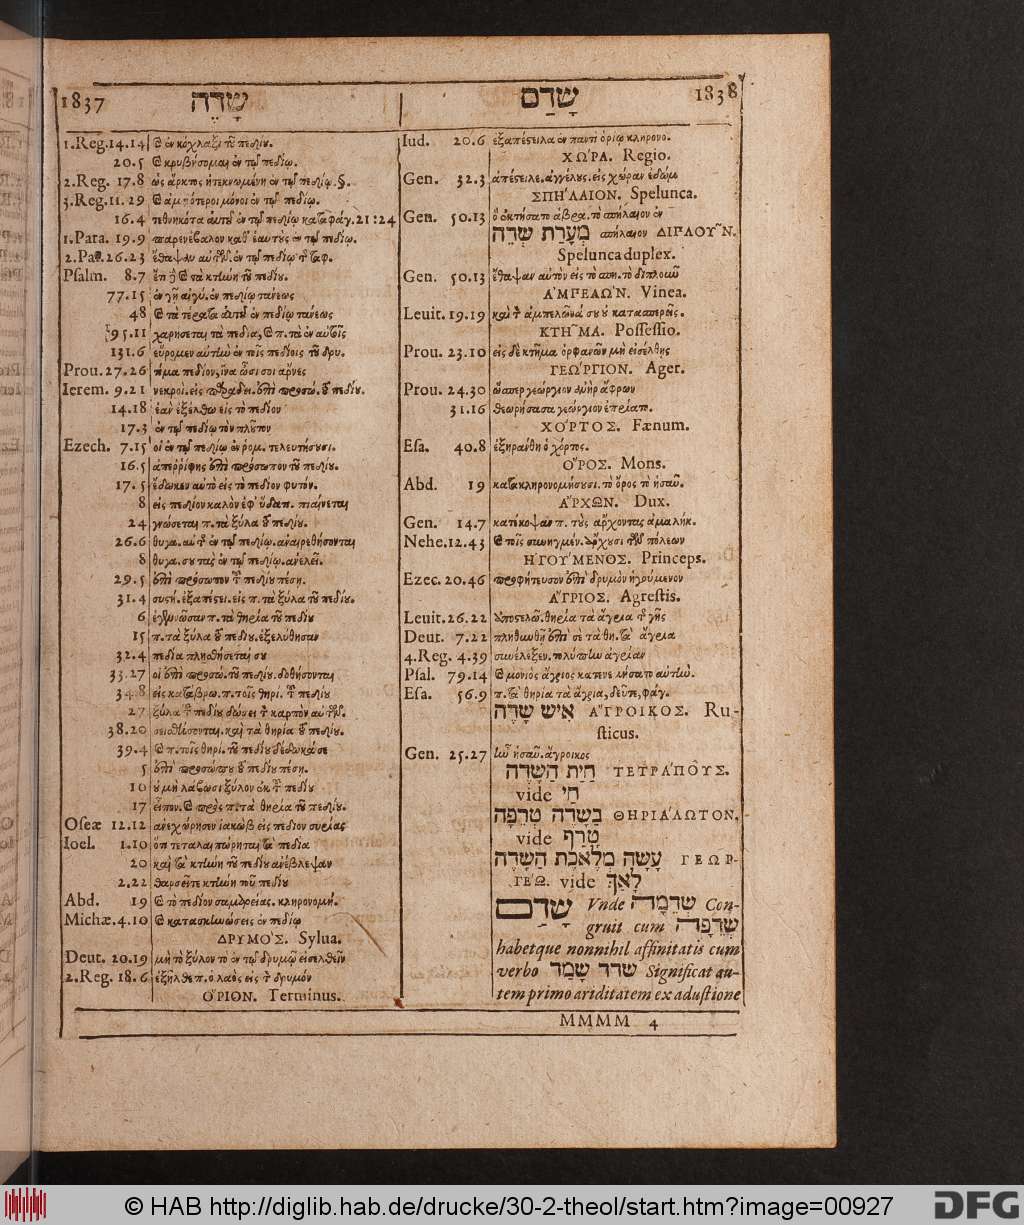 1837 שָׂדֶה
1.Reg.14.14 ἐν κόχλαξι τοῦ πεδίου.
20.5 κρυβήσομαι ἐν τῷ πεδίῳ.
2.Reg. 17.8 ὡς ἄρκτος ἠτεκνωμένη ἐν τῷ πεδίῳ.
3.Reg.11.29 ἀμφότεροι μόνοι ἐν τῷ πεδίῳ.
16.4 τεθνηκότα ἐν τῷ πεδίῳ 21:24
1.Para. 19.9 παρενέβαλον καθ᾽ ἑαυτοὺς ἐν τῷ πεδίῳ.
2.Par.26.23 ἔθαψαν ἐν τῷ πεδίῳ
Psalm. 8.7 ἔτι κτήνη τοῦ πεδίου.
77.15 ἐν γῇ αἰγύ. ἐν πεδίῳ τάνεως
48 τὰ τέρατα ἐν πεδίῳ τάνεως
95.11 χαρήσεται τὰ πεδία, π. τὰ ἐν αὐτοῖς
131.6 εὕρομεν αὐτὴν ἐν τοῖς πεδίοις τοῦ δρυ.
Prou. 27.26 πεδίον, ἵνα ὦσι σοι ἄρνες
Ierem. 9.21 νεκροὶ. εἰς πεδίου.
14.18 ἐὰν ἐξέλθω εἰς τὸ πεδίον
17.3 ἐν τῷ πεδίῳ τὸν πλοῦτον
Ezech. 7.15 οἱ ἐν τῷ πεδίῳ ἐν ῥομ. τελευτήσουσι.
16.5 ἀπερρίφης ἐπὶ πρόσωπον τοῦ πεδίου.
17.5 ἔδωκεν αὐτὸ εἰς τὸ πεδίον φυτόν.
8 εἰς πεδίον καλὸν ἐφ᾽ ὕδατ. πιαίνεται
24 γνώσεται π. τὰ ξύλα τοῦ πεδίου.
26.6 θυγα. αὐτ ἐν τῷ πεδίῳ. ἀναιρεθήσονται
8 θυγα. σου τὰς ἐν τῷ πεδίῳ. ἀνελεῖ.
29.5 ἐπὶ πρόσωπον τοῦ πεδίου πέσῃ.
31.4 ἐξαπέστει. εἰς π. τὰ ξύλα τοῦ πεδίου.
6 ἐγεννῶσαν π. τὰ θηρία τοῦ πεδίου
15 π. τὰ ξύλα τοῦ πεδίου. ἐξελύθησαν
32.4 πεδία πλησθήσεταί σου
33.27 οἱ ἐπὶ προσώ. τοῦ πεδίου. δοθήσονται
34.8 εἰς κατάβρω. π. τοῖς θηρί. τοῦ πεδίου
27 ξύλα τοῦ πεδίου δώσει τὸν καρπὸν αὐτῶν.
38.20 σεισθήσονται. καὶ τὰ θηρία τοῦ πεδίου.
39.4 π. τοῖς θηρί. τοῦ πεδίου δέδωκά σε
5 ἐπὶ προσώπου τοῦ πεδίου πέσῃ.
10 οὐ μὴ λάβωσι ξύλον ἐκ τοῦ πεδίου
17 εἶπον. πρὸς π. τὰ θηρία τοῦ πεδίου.
Oseæ 12.12 ἀνεχώρησεν ἰακὼβ εἰς πεδίον συρίας
Ioel. 1.10 ὅτι τεταλαιπώρηται τὰ πεδία
20 καὶ τὰ κτήνη τοῦ πεδίου ἀνέβλεψαν
2.22 θαρσεῖτε κτήνη τοῦ πεδίου
Abd. 19 τὸ πεδίον σαμαρείας. κληρονομή.
Michæ. 4.10 κατασκηνώσεις ἐν πεδίῳ
ΔΡΥΜΟΣ. Sylua.
Deut. 20.19 μὴ τὸ ξύλον τὸ ἐν τῷ δρυμῷ εἰσελθεῖν
2.Reg. 18.6 ἐξῆλθε π. ὁ λαὸς εἰς τὸν δρυμόν
ὍΡΙΟΝ. Terminus.
שָׂדַם 1838
Iud. 20.6 ἐξαπέστειλα ἐν παντὶ ὁρίῳ κληρονο.
ΧΩΡΑ. Regio.
Gen. 32.3 ἀπέστειλε. ἀγγέλους. εἰς χώραν ἐδώμ
ΣΠΗΛΑΙΟΝ. Spelunca.
Gen. 50.13 ὃ ἐκτήσατο ἀβρα. τὸ σπήλαιον ἐν
מְעָרַת שְׂדֵה σπήλαιον ΔΙΠΛΟΥΝ.
Spelunca duplex.
Gen. 50.13 ἔθαψαν αὐτὸν εἰς τὸ σπη. τὸ διπλοῦν
ἈΜΠΕΛΩΝ. Vinea.
Leuit. 19.19 καὶ τὸν ἀμπελῶνά σου οὐ κατασπερεῖς.
ΚΤΗΜΑ. Possessio.
Prou. 23.10 εἰς δὲ κτῆμα ὀρφανῶν μὴ εἰσέλθῃς
ΓΕΩΡΓΙΟΝ. Ager.
Prou. 24.30 ὥσπερ γεώργιον ἀνὴρ ἄφρων
31.16 θεωρήσασα γεώργιον ἐπρίατο.
ΧΟΡΤΟΣ. Fænum.
Esa. 40.8 ἐξηράνθη ὁ χόρτος.
ὌΡΟΣ. Mons.
Abd. 19 κατακληρονομήσουσι. τὸ ὄρος τὸ ἡσαῦ.
ἌΡΧΩΝ. Dux.
Gen. 14.7 κατέκοψαν π. τοὺς ἄρχοντας ἀμαλήκ.
Nehe. 12.43 τοῖς συνηγμέν. ἄρχουσι τῶν πόλεων
ἩΓΟΥΜΕΝΟΣ. Princeps.
Ezec. 20.46 προφήτευσον ἐπὶ δρυμὸν ἡγούμενον
ἌΓΡΙΟΣ. Agrestis.
Leuit. 26.22 ἀποστελῶ. θηρία τὰ ἄγρια τῆς γῆς
Deut. 7.22 πληθυνθῇ ἐπὶ σὲ τὰ θη. τὰ ἄγρια
4.Reg. 4.39 συνέλεξεν. τολύπην ἀγρίαν
Psal. 79.14 μονιὸς ἄγριος κατενεμήσατο αὐτήν.
Esa. 56.9 π. τὰ θηρία τὰ ἄγρια, δεῦτε, φάγ.
אִישׁ שָׂדֶה ἌΓΡΟΙΚΟΣ. Ru-
sticus.
Gen. 25.27 ἦν ἡσαῦ. ἄγροικος
חַיַּת הַשָּׂדֶה ΤΕΤΡΑΠΟΥΣ.
vide חי
בַּשָּׂדֶה טְרֵפָה ΘΗΡΙΑΛΩΤΟΝ.
vide טָרַף
עָשָׂה מְלֶאכֶת הַשָּׂדֶה ΓΕΩΡ-
ΓΕΩ. vide לָאַךְ
שָׂדַם Vnde שְׁדֵמָה Con-
gruit cum שְׁדֵפָה
habetque nonnihil affinitatis cum
verbo שדד שָׁמַד Significat au-
tem primo ariditatem ex adustione
MMMM 4
© HAB http://diglib.hab.de/drucke/30-2-theol/start.htm?image=00927
DFG